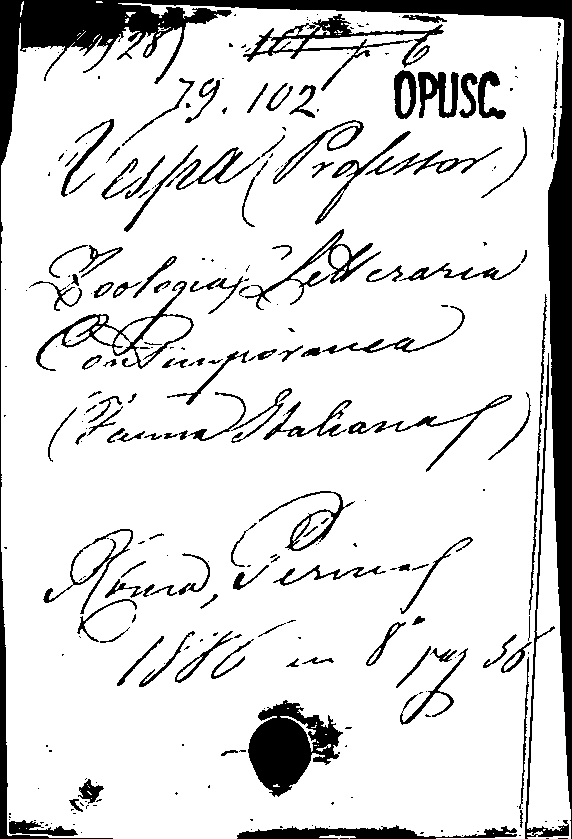 (1928)
79.102 OPUSC.
Vespa (Professor)
Zoologia Letteraria
Contemporanea
(Fauna Italiana)
Roma, Perino
1886 in 8° pag 36